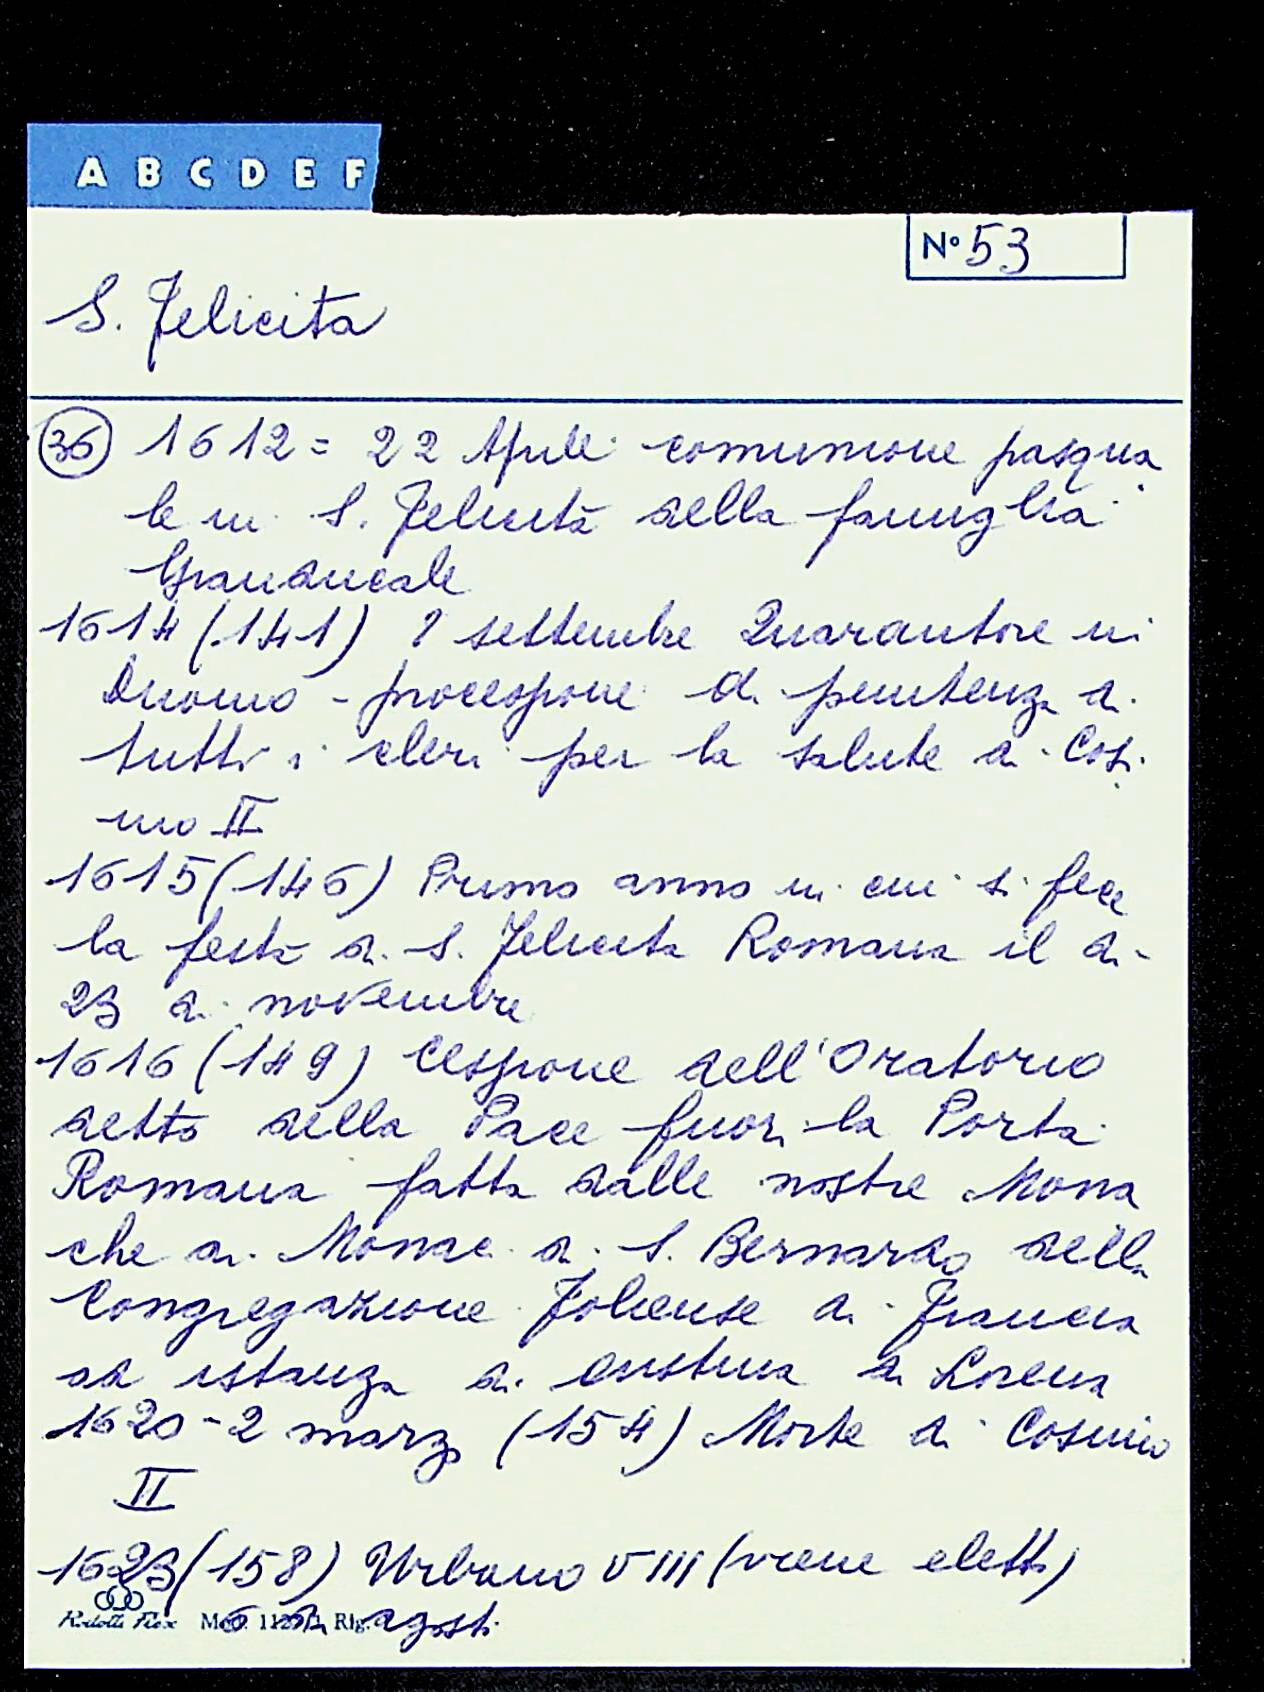 A B C D E F
N° 53
S. Felicita
36 1612 = 22 Aprile comunione pasqua
le in S. Felicità della famiglia
Granducale
1614 (141) 8 settembre Quarantore in
Duomo - processione di penitenza di
tutti i cleri per la salute di Cosi
mo II
1615 (146) Primo anno in cui si fece
la festa di S. Felicita Romana il dì
23 di novembre
1616 (149) Cessione dell'Oratorio
detto della Pace fuori la Porta
Romana fatta dalle nostre Mona
che ai Monaci di S. Bernardo della
Congregazione Foliense di Francia
ad istanza di Cristina di Lorena
1620 - 2 marzo (154) Morte di Cosimo
II
1623 (158) Urbano VIII (viene eletto)
6 di agosto